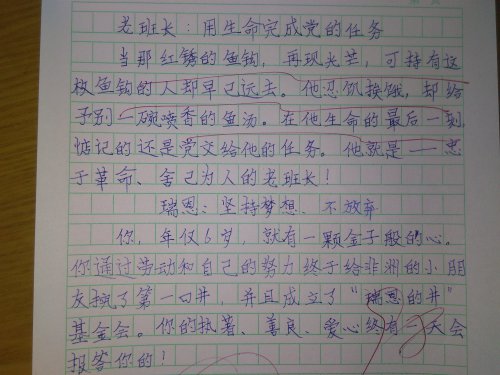 老班长：用生命完成党的任务
当那红锈的鱼钩，再现长芒，可持有这
枚鱼钩的人却早已远去。他忍饥挨饿，却给
予别一碗喷香的鱼汤。在他生命的最后一刻，
惦记的还是党交给他的任务。他就是——忠
于革命、舍己为人的老班长！
瑞恩：坚持梦想、不放弃
你，年仅6岁，就有一颗金子般的心。
你通过劳动和自己的努力终于给非洲的小朋
友挖了第一口井，并且成立了“瑞恩的井”
基金会。你的执著、善良、爱心终有一天会
报答你的！